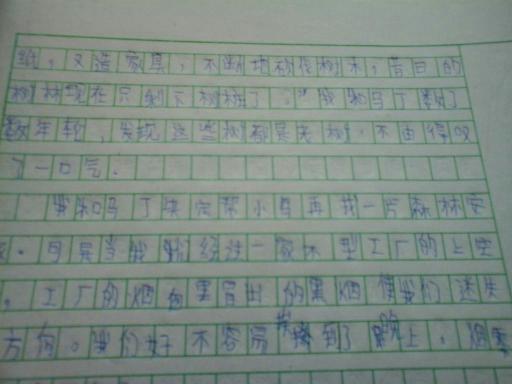 纸,又造家具,不断地砍伐树木,昔日的
树林现在只剩下树桩了。"我和马丁数了
数年轮,发现这些树都是老树,不由得叹
了一口气。
我和马丁决定帮小鸟再找一片森林安
家。可是当我们经过一家大型工厂的上空
,工厂的烟囱里冒出的黑烟使我们迷失
方向。我们好不容易找到了晚上,